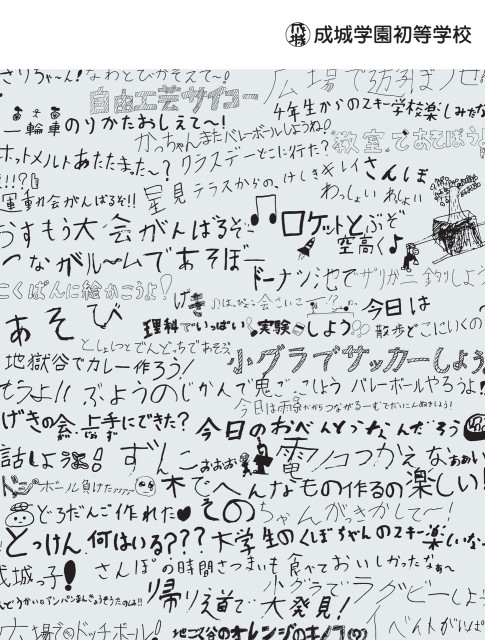 成城学園初等学校
さりちゃ〜ん!なわとびかぞえて〜!
広場で遊ぼうぜ
自由工芸サイコー
4年生からのスキー学校楽しみだな
一輪車のりかたおしえて〜!
かっちゃんまたバレーボールしようね!
教室であそぼうよ
ホットメルトあたたまた〜?
クラスデーどこに行た?
さんぽ
運動会がんばるぞ!!
星見テラスからの、けしきキレイ
わっしょいわっしょい
おすもう大会がんばるぞ
ロケットとぶぞ
空高く
つながルームであそぼー
ドーナツ池でザリガニ釣りしよう
こくばんに絵かこうよ!
今日は
あそび
理科でいっぱい実験しよう
散歩どこにいくの?
としょしつとでんどっちであそぶ
地獄谷でカレー作ろう!
小グラでサッカーしよう
ぶようのじかんで鬼ごっこしよう
バレーボールやろうよ!!
げきの会、上手にできた?
今日のおべんとうなんだろう
話しよう!
ずんこ
おおおお
電ノコつかえなぁぁい
ドッジボール負けた
木でへんなもの作るの楽しい!
どろだんご作れた
そのちゃんがっきかして〜!
とっけん何はいる???
大学生のくぼちゃんのスキー楽しいな
成城っ子!
さんぽの時間さつまいも食べておいしかったなぁ〜
帰り道で大発見!
小グラでラグビーしよう
広場でドッチボール!
地ごく谷のオレンジのキノコ
イベントがんば